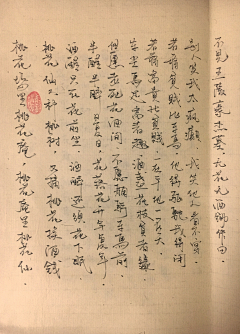 桃花塢里桃花庵 桃花庵里桃花仙
桃花仙人种桃树 又摘桃花换酒钱
酒醒只在花前坐 酒醉还须花下眠
半醒半醉日复日 花落花开年复年
但愿老死花酒间 不愿鞠躬车马前
车尘马足富者趣 酒盏花枝贫者缘
若将富贵比贫贱 一在平地一在天
若将贫贱比车马 他得驱驰我得闲
别人笑我太疯癫 我笑他人看不穿
不见五陵豪杰墓 无花无酒锄作田